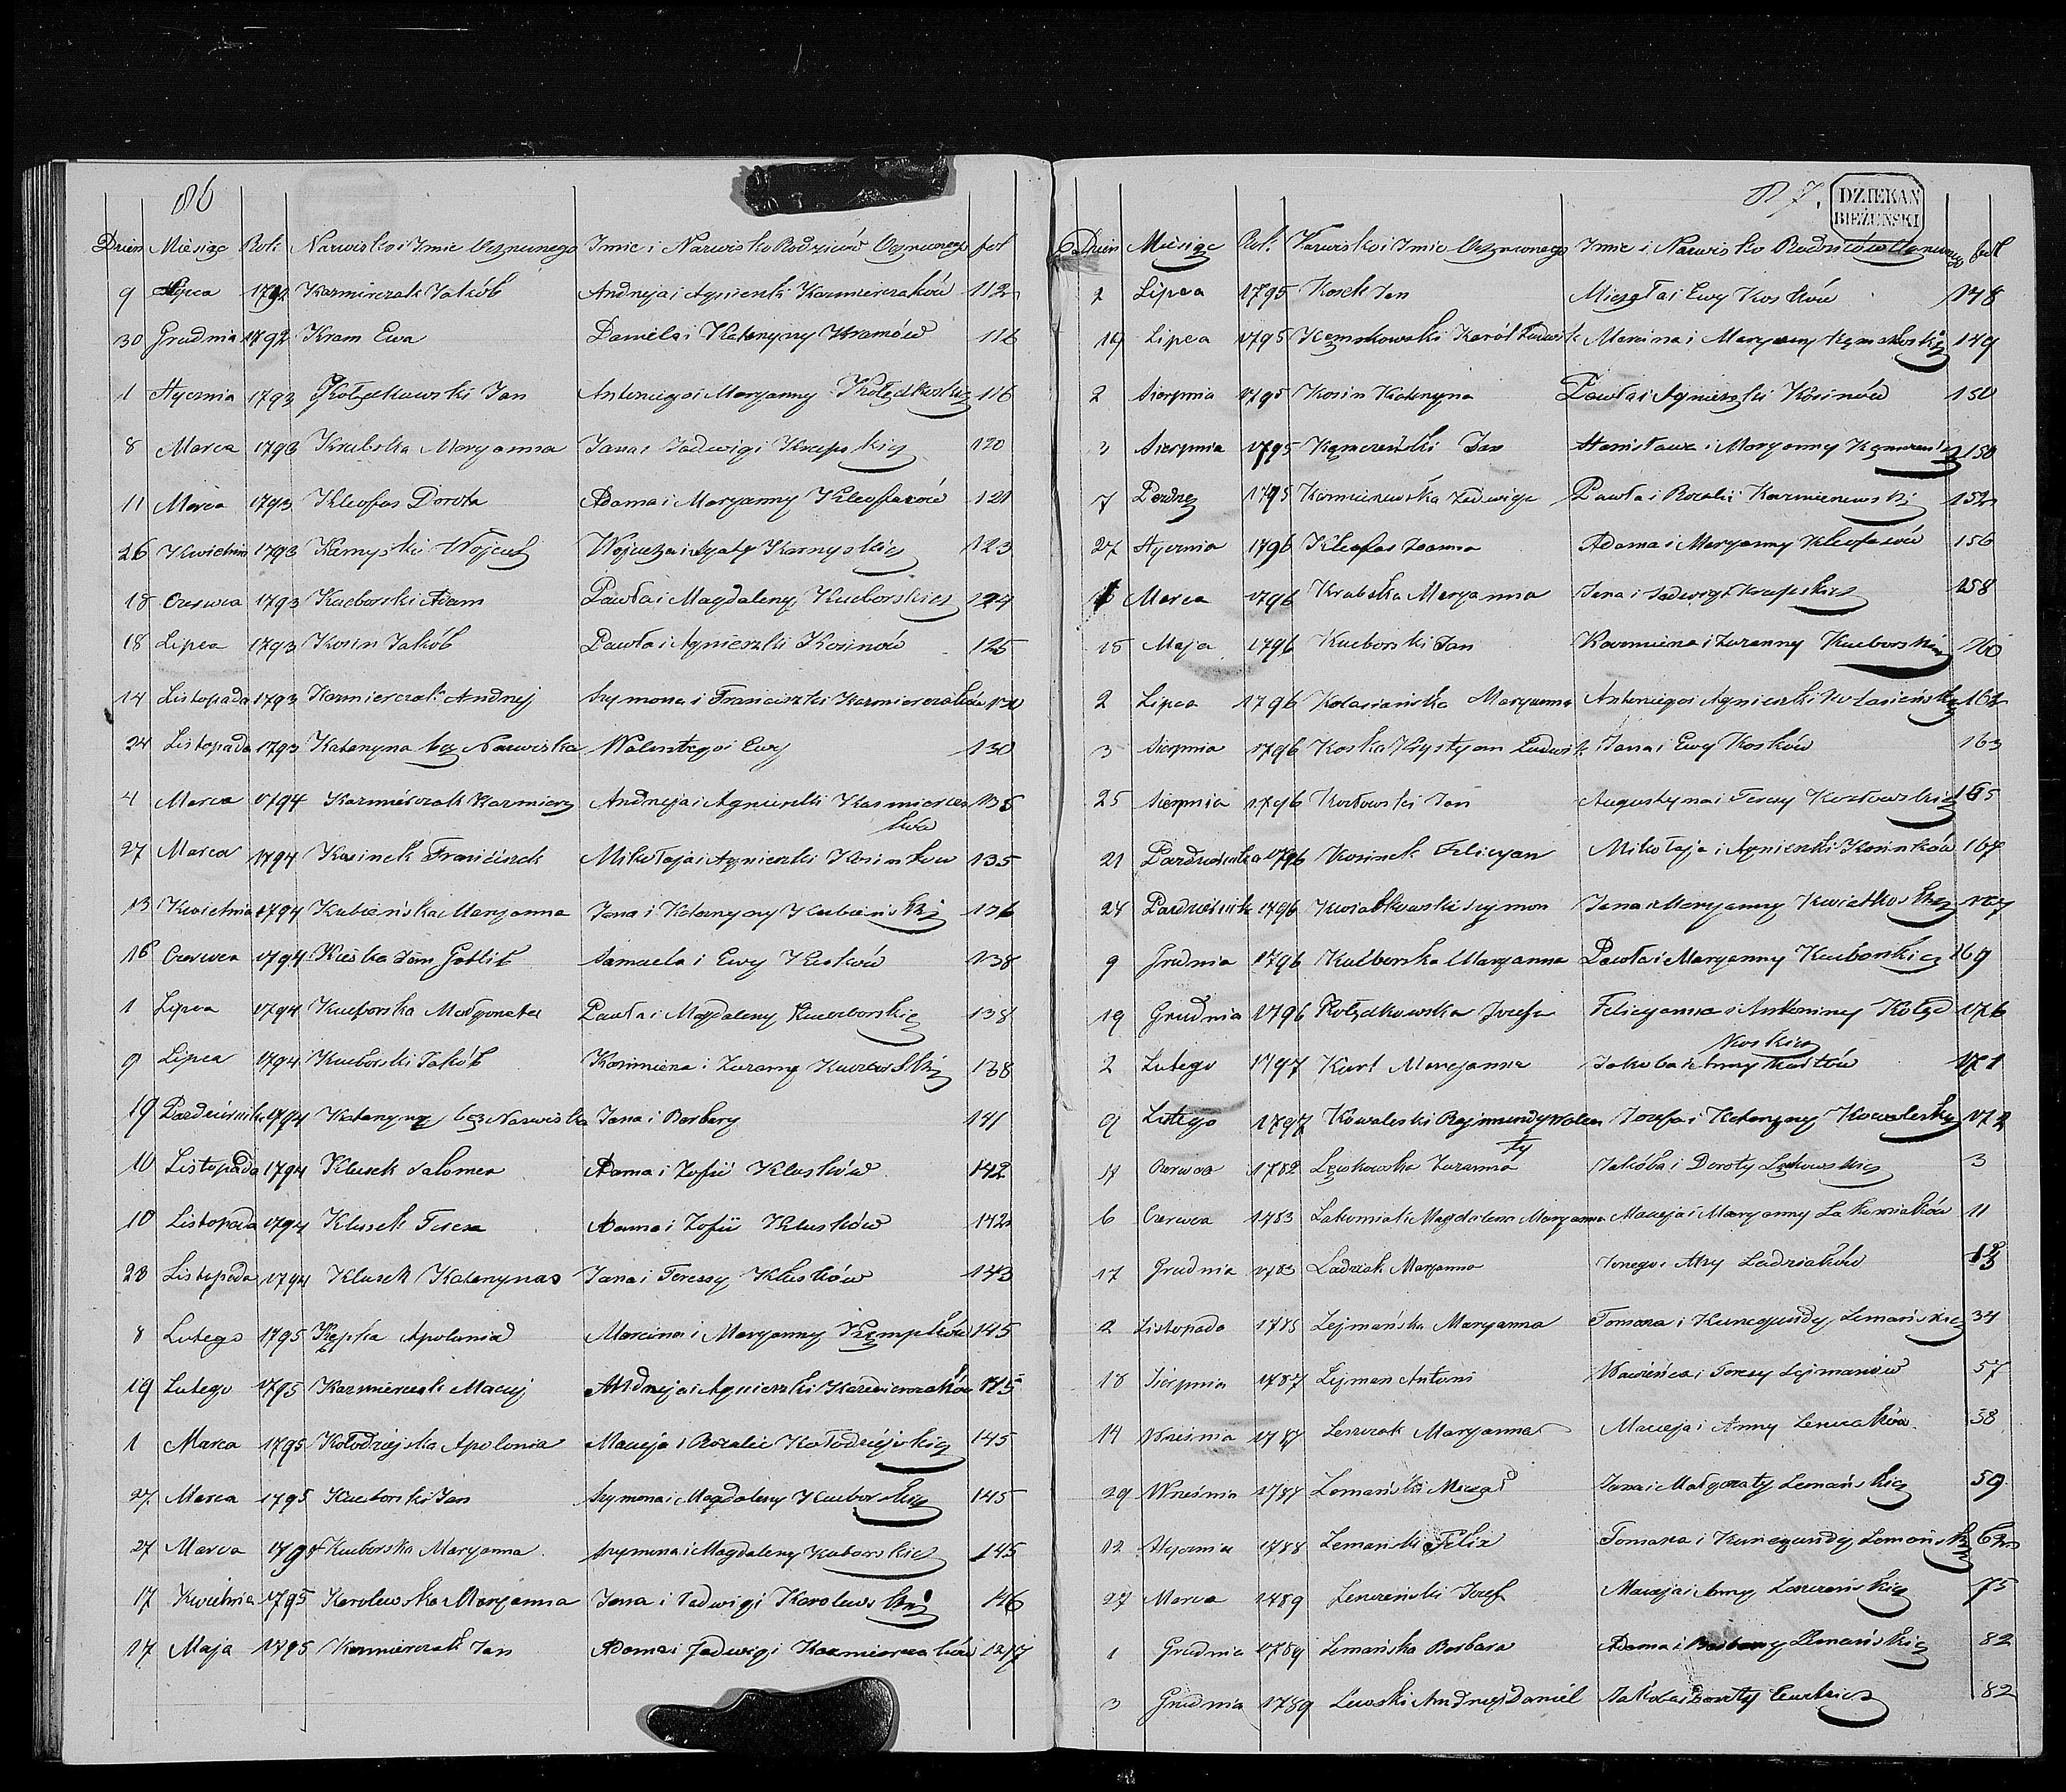 86
Dzień Miesiąc Rok Nazwisko i Imie Urznunego Imie i Nazwisko Rodziców Urznunego fol
9 Lipca 1792 Kazmirczak Jakób Andrzeja i Agnieszki Kazmierczaków 112
30 Grudnia 1792 Kram Ewa Daniela i Katarzyny Kramów 116
1 Stycznia 1793 Kołędkowski Jan Antoniego i Maryanny Kołędkoskich 116
8 Marca 1793 Krubska Maryanna Jana i Jadwigi Krupskich 120
11 Marca 1793 Kleofas Dorota Adama i Maryanny Kleofasów 121
26 Kwietnia 1793 Karnyski Wojciech Wojciecha i Agaty Karnyskich 123
18 Czerwca 1793 Kucborski Adam Pawła i Magdaleny Kucborskich 124
18 Lipca 1793 Kosin Jakób Pawła i Agnieszki Kosinów 125
14 Listopada 1793 Kazmierczak Andrzej Szymona i Franciszki Kazmierczaków 130
24 Listopada 1793 Katarzyna bez Nazwiska Walentego i Ewy 130
4 Marca 1794 Kazmierczak Kazmierz Andrzeja i Agnieszki Kazmiercza 135
ków
27 Marca 1794 Kosinek Franciszek Mikołaja i Agnieszki Kosinków 135
13 Kwietnia 1794 Kubieńska Maryanna Jana i Katarzyny Kubieńskich 136
16 Czerwca 1794 Kieska Jan Gotlib Samuela i Ewy Kiesków 138
1 Lipca 1794 Kucborska Małgorzata Pawła i Magdaleny Kucborskich 138
9 Lipca 1794 Kucborski Jakób Kazimierza i Zuzanny Kucborskich 138
19 Pazdziernika 1794 Katarzyny bez Nazwiska Jana i Barbary 141
10 Listopada 1794 Klusek Salomea Adama i Zofii Klusków 142
10 Listopada 1794 Klusek Teresa Adama i Zofii Klusków 142
28 Listopada 1794 Klusek Katarzyna Jana i Teressy Klusków 143
8 Lutego 1795 Kępka Apolonia Marcina i Maryanny Kempków 145
19 Lutego 1795 Kazmierczak Maciej Andrzeja i Agnieszki Kazmierczaków 145
1 Marca 1795 Kołodziejska Apolonia Macieja i Rozalii Kołodziejskich 145
27 Marca 1795 Kucborski Jan Szymona i Magdaleny Kucborskich 145
27 Marca 1795 Kucborska Maryanna Szymona i Magdaleny Kuborskich 145
17 Kwietnia 1795 Karolewska Maryanna Jana i Jadwigi Karolewskich 146
17 Maja 1795 Kazmierczak Jan Adama i Jadwigi Kazmierczaków 147
87.
DZIEKAN
BIEŻUNSKI
Dzień Miesiąc Rok Nazwisko i Imie Urznunego Imie i Nazwisko Rodziców Urznunego fol
2 Lipca 1795 Kosek Jan Michała i Ewy Kosków 148
19 Lipca 1795 Karól Ludwik Marcina i Maryanny 149
2 Sierpnia 1795 Kosin Katarzyna Pawła i Agnieszki Kosinów 150
3 Sierpnia 1795 Jan Stanisława i Maryanny 150
7 Pazdz 1795 Kazmierzewska Jadwiga Pawła i Rozalii Kazmierzewski 152
27 Stycznia 1796 Kleofas Joanna Adama i Maryanny Kleofasów 156
Marca 1796 Krubska Maryanna Jana i Jadwigi Krupskich 158
15 Maja 1796 Kucborski Jan Kazmierza i Zuzanny Kucborskich 160
2 Lipca 1796 Kołasiańska Maryanna Antoniego i Agnieszki Kołasieńskich 162
3 Sierpnia 1796 Koska Krystyan Ludwik Jana i Ewy Kosków 163
25 Sierpnia 1796 Kozłowski Jan Augustyna i Teresy Kozłowskich 165
21 Pazdziernika 1796 Kosinek Felicyan Mikołaja i Agnieszki Kosinków 167
24 Pazdziernik 1796 Kwiatkowski Szymon Jana i Maryanny Kwiatkoskich 167
9 Grudnia 1796 Kulborska Maryanna Pawła i Maryanny Kucborskich 169
19 Grudnia 1796 Kołędkowska Jozefa Felicyanna i Antoniny Kołęd 176
koskich
2 Lutego 1797 Kurt Maryanna Jakoba i Anny Kurtów 171
9 Lutego 1797 Kowaleski Rajmundy Walen Jozefa i Katarzyny Kowaleskich 172
ty
11 Czerwca 1782 Zuzanna Jakóba i Doroty 3
6 Czerwca 1783 Lakomiak Magdalena Maryanna Macieja i Maryanny Lakomiaków 11
17 Grudnia 1783 Ladziak Maryanna Ladziaków 13
2 Listopada 1785 Lejmańska Maryanna Tomasza i Kunegundy Lemańskich 34
18 Sierpnia 1787 Lejman Antoni Wawrzeńca i Teresy Lejmanów 57
14 Września 1787 Leszczak Maryanna Macieja i Anny Leszczaków 58
29 Września 1787 Lemański Michał Jana i Małgorzaty Lemańskich 59
12 Stycznia 1788 Lemański Felix Tomasza i Kunegundy Lemońskich 62
27 Marca 1789 Leszczeński Jozef Macieja i Anny Leszczeńskich 75
1 Grudnia 1789 Lemańska Barbara Adama i Barbary Lemańskich 82
3 Grudnia 1789 Lewski Andrzej Daniél Jakoba i Doroty 82